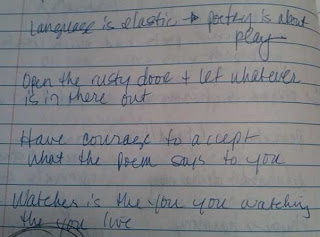 Language is elastic → poetry is about
play
Open the rusty door + let whatever
is in there out
Have courage to accept
what the poem says to you
Watcher is the you you watching
the you live